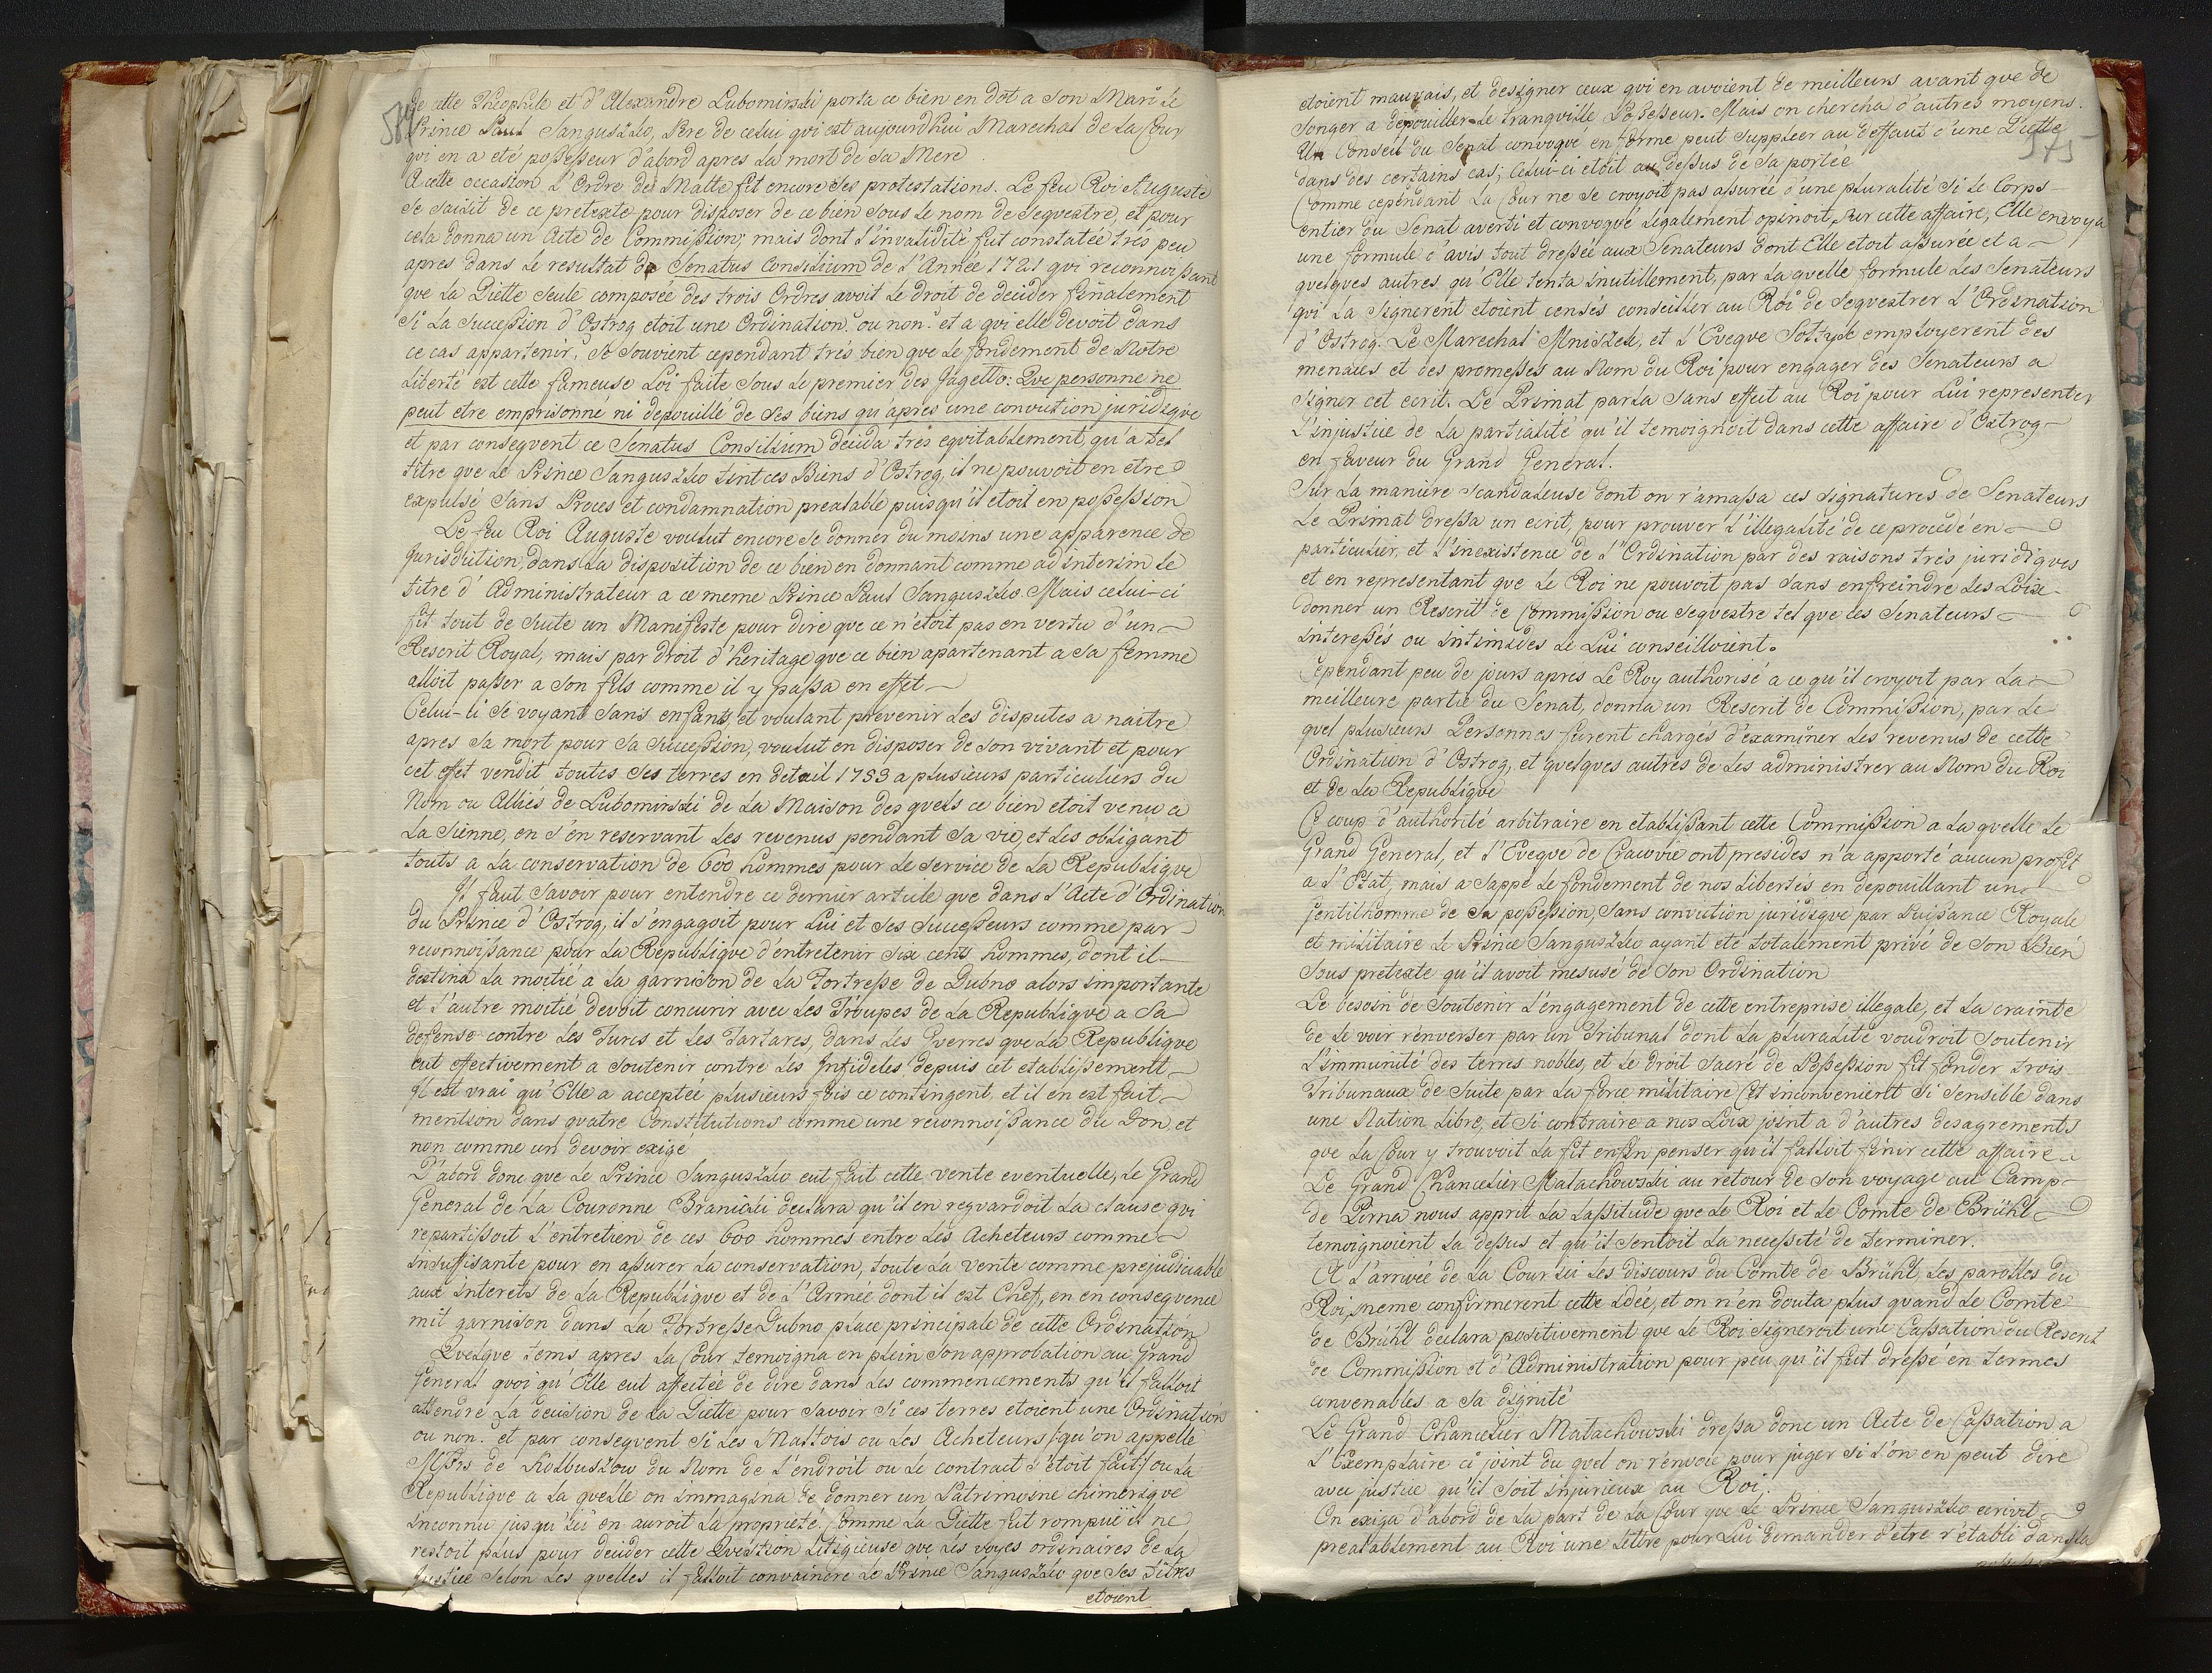 584
de cette Théophile et d'Alexandre Lubomirski porta ce bien en dot a son Mari le
Prince Paul Sanguszko, Pere de celui qui est aujourdhui Marechal de la Cour
qui en a eté possesseur d'abord apres la mort de sa Mere.
A cette occasion L'Ordre de Malte fit encore des protestations. Le feu Roi Auguste
se saisit de ce pretexte pour disposer de ce bien sous le nom de Seqvestre, et pour
cela donna un Acte de Commission; mais dont l'invalidité fut constatée trés peu
apres dans le resultat de Senatus Consilium de l'Année 1721 qvi reconnoissant
qve la Diette seule composée des trois Ordres avoit le droit de decider finalement
si la succession d'Ostrog etoit une Ordination? ou non? et a qvi elle devoit dans
ce cas appartenir, se souvient cependant trés bien qve le fondement de Notre
Liberté est cette fameuse Loi faite sous le premier des Jagello: Qve personne ne
peut etre emprisonné ni depouillé de ses biens qu'apres une conviction juridiqve
et par conseqvent ce Senatus Consilium decida trés eqvitablement, qu'a tel
titre qve le Prince Sanguszko tint ces Biens d'Ostrog, il ne pouvoit en etre
expulsé sans Proces et condamnation prealable puisqu'il etoit en possession
Le feu Roi Auguste voulut encore se donner du moins une apparence de
Jurisdiction, dans la disposition de ce bien en donnant comme ad interim le
titre d'Administrateur a ce meme Prince Paul Sanguszko. Mais celui-ci
fit tout de suite un Manifeste pour dire qve ce n'étoit pas en vertu d'un
Rescrit Royal, mais par droit d'heritage qve ce bien apartenant a sa femme
alloit passer a son fils comme il y passa en effet
Celui-ci se voyant sans enfants, et voulant prevenir les disputes a naitre
apres sa mort pour sa succession, voulut en disposer de son vivant et pour
cet effet vendit toutes ses terres en detail 1753 a plusieurs particuliers du
Nom ou Alliés de Lubomirski de la Maison des qvels ce bien etoit venu a
la sienne, en s'en reservant les revenus pendant sa vie, et les obligant
touts a la conservation de 600 hommes pour le service de la Republiqve
Il faut savoir pour entendre ce dernier article qve dans l'Acte d'Ordination
du Prince d'Ostrog, il s'engagoit pour Lui et ses successeurs comme par
reconnoissance pour la Republiqve d'entretenir six cents hommes, dont il
destina la moitié a la garnison de la Fortresse de Dubno alors importante
et l'autre moitié devoit concurir avec les Troupes de la Republiqve a sa
defense contre les Turcs et les Tartares, dans les Gverres qve la Republiqve
eut effectivement a soutenir contre les Infideles depuis cet etablissement
Il est vrai qu'Elle a acceptée plusieurs fois ce contingent, et il en est fait
mention dans qvatre Constitutions comme une reconnoissance du Don, et
non comme un devoir exigé
D'abord donc qve le Prince Sanguszko eut fait cette vente eventuelle, le Grand
General de la Couronne Branicki declara qu'il en regvardoit la clause qvi
repartissoit l'entretien de ces 600 hommes entre les Acheteurs comme
insuffisante pour en assurer la conservation, toute la vente comme prejudiciable
aux interets de la Republiqve et de l'Armée dont il est Chef, en en conseqvence
mit garnison dans la Fortresse Dubno place principale de cette Ordination
Qvelqve tems apres la Cour temoigna en plein son approbation au Grand
General qvoi qu'Elle eut affectée de dire dans les commencements qu'il falloit
attendre la decision de la Diette pour savoir si ces terres etoient une Ordination
ou non? et par conseqvent si les Maltois ou les Acheteurs (qu'on appelle
Mrs de Kolbuszow du Nom de l'endroit ou le contract s'étoit fait) ou la
Republiqve a la qvelle on immagina de donner un Patrimoine chimeriqve
inconnu jusqu'ici en auroit la proprieté. Comme la Diette fut rompüe il ne
restoit plus pour decider cette Qvestion Litigieuse qve les voyes ordinaires de la
Justice selon les qvelles il falloit convaincre le Prince Sanguszko qve ses Titres
etoient
etoient mauvais, et designer ceux qvi en avoient de meilleurs avant qve de
songer a depouiller le tranqville Possesseur. Mais on chercha d'autres moyens.
Un Conseil du Senat convoqvé en forme peut suppleer au deffaut d'une Diette
575
dans des certains cas; celui-ci etoit au dessus de sa portée
Comme cependant la Cour ne se croyoit pas assurée d'une pluralité si le Corps
entier du Senat averti et convoqvé legalement opinoit sur cette affaire, Elle envoya
une formule d'avis tout dressée aux Senateurs dont Elle etoit assurée et a
qvelqves autres qu'Elle tenta inutillement, par la qvelle formule les Senateurs
qvi la signerent etoient censés conseiller au Roi de Seqvestrer L'Ordination
d'Ostrog. Le Marechal Mniszek, et l'Eveqve Soltyk employerent des
menaces et des promesses au Nom du Roi pour engager des Senateurs a
signer cet ecrit. Le Primat parla sans effect au Roi pour Lui representer
L'injustice de la partialité qu'il temoignoit dans cette affaire d'Ostrog
en faveur du Grand General.
Sur la maniere scandaleuse dont on r'amassa ces signatures de Senateurs
Le Primat dressa un ecrit, pour prouver l'illegalité de ce procedé en
particulier, et l'inexistence de l'Ordination par des raisons trés juridiqves
et en representant qve le Roi ne pouvoit pas sans enfreindre les Loix
donner un Rescrit de Commission ou seqvestre tel qve les Senateurs
interessés ou intimidés le Lui conseilloient.
Cependant peu de jours aprés Le Roy authorisé a ce qu'il croyoit par la
meilleure partie du Senat, donna un Rescrit de Commission, par le
qvel plusieurs Personnes furent chargés d'examiner les revenus de cette
Ordination d'Ostrog, et qvelqves autres de les administrer au Nom du Roi
et de la Republiqve
Ce coup d'authorité arbitraire en etablissant cette Commission a la qvelle le
Grand General, et l'Eveqve de Cracovie ont presidés n'a apporté aucun profit
a l'Etat, mais a sappé le fondement de nos Libertés en depouillant un
Gentilhomme de sa possession, sans conviction juridiqve par Puissance Royale
et militaire le Prince Sanguszko ayant eté totalement privé de son Bien
sous pretexte qu'il avoit mesusé de son Ordination
Le besoin de soutenir l'engagement de cette entreprise illegale, et la crainte
de le voir renverser par un Tribunal dont la pluralité voudroit soutenir
l'immunité des terres nobles, et le droit sacré de Possession fit fonder trois
Tribunaux de suite par la force militaire Cet inconvenient si sensible dans
une Nation Libre, et si contraire a nos Loix joint a d'autres desagrements
qve la Cour y trouvoit la fit enfin penser qu'il falloit finir cette affaire
Le Grand Chancelier Malachowski au retour de son voyage au Camp
de Pirna nous apprit la Lassitude qve le Roi et le Comte de Brühl
temoignoient la dessus et qu'il sentoit la necessité de terminer.
A l'arrivée de la Cour ici les discours du Comte de Brühl, les parolles du
Roi meme confirmerent cette Idée, et on n'en douta plus qvand le Comte
de Brühl declara positivement qve le Roi signeroit une Cassation du Rescrit
de Commission et d'Administration pour peu qu'il fut dressé en termes
convenables a sa dignité
Le Grand Chancelier Malachowski dressa donc un Acte de Cassation a
L'Exemplaire ci joint du qvel on r'envoie pour juger si l'on en peut dire
avec justice qu'il soit injurieux au Roi.
On exiga d'abord de la part de la Cour qve le Prince Sanguszko ecrivit
prealablement au Roi une Lettre pour Lui demander d'etre r'établi dans la